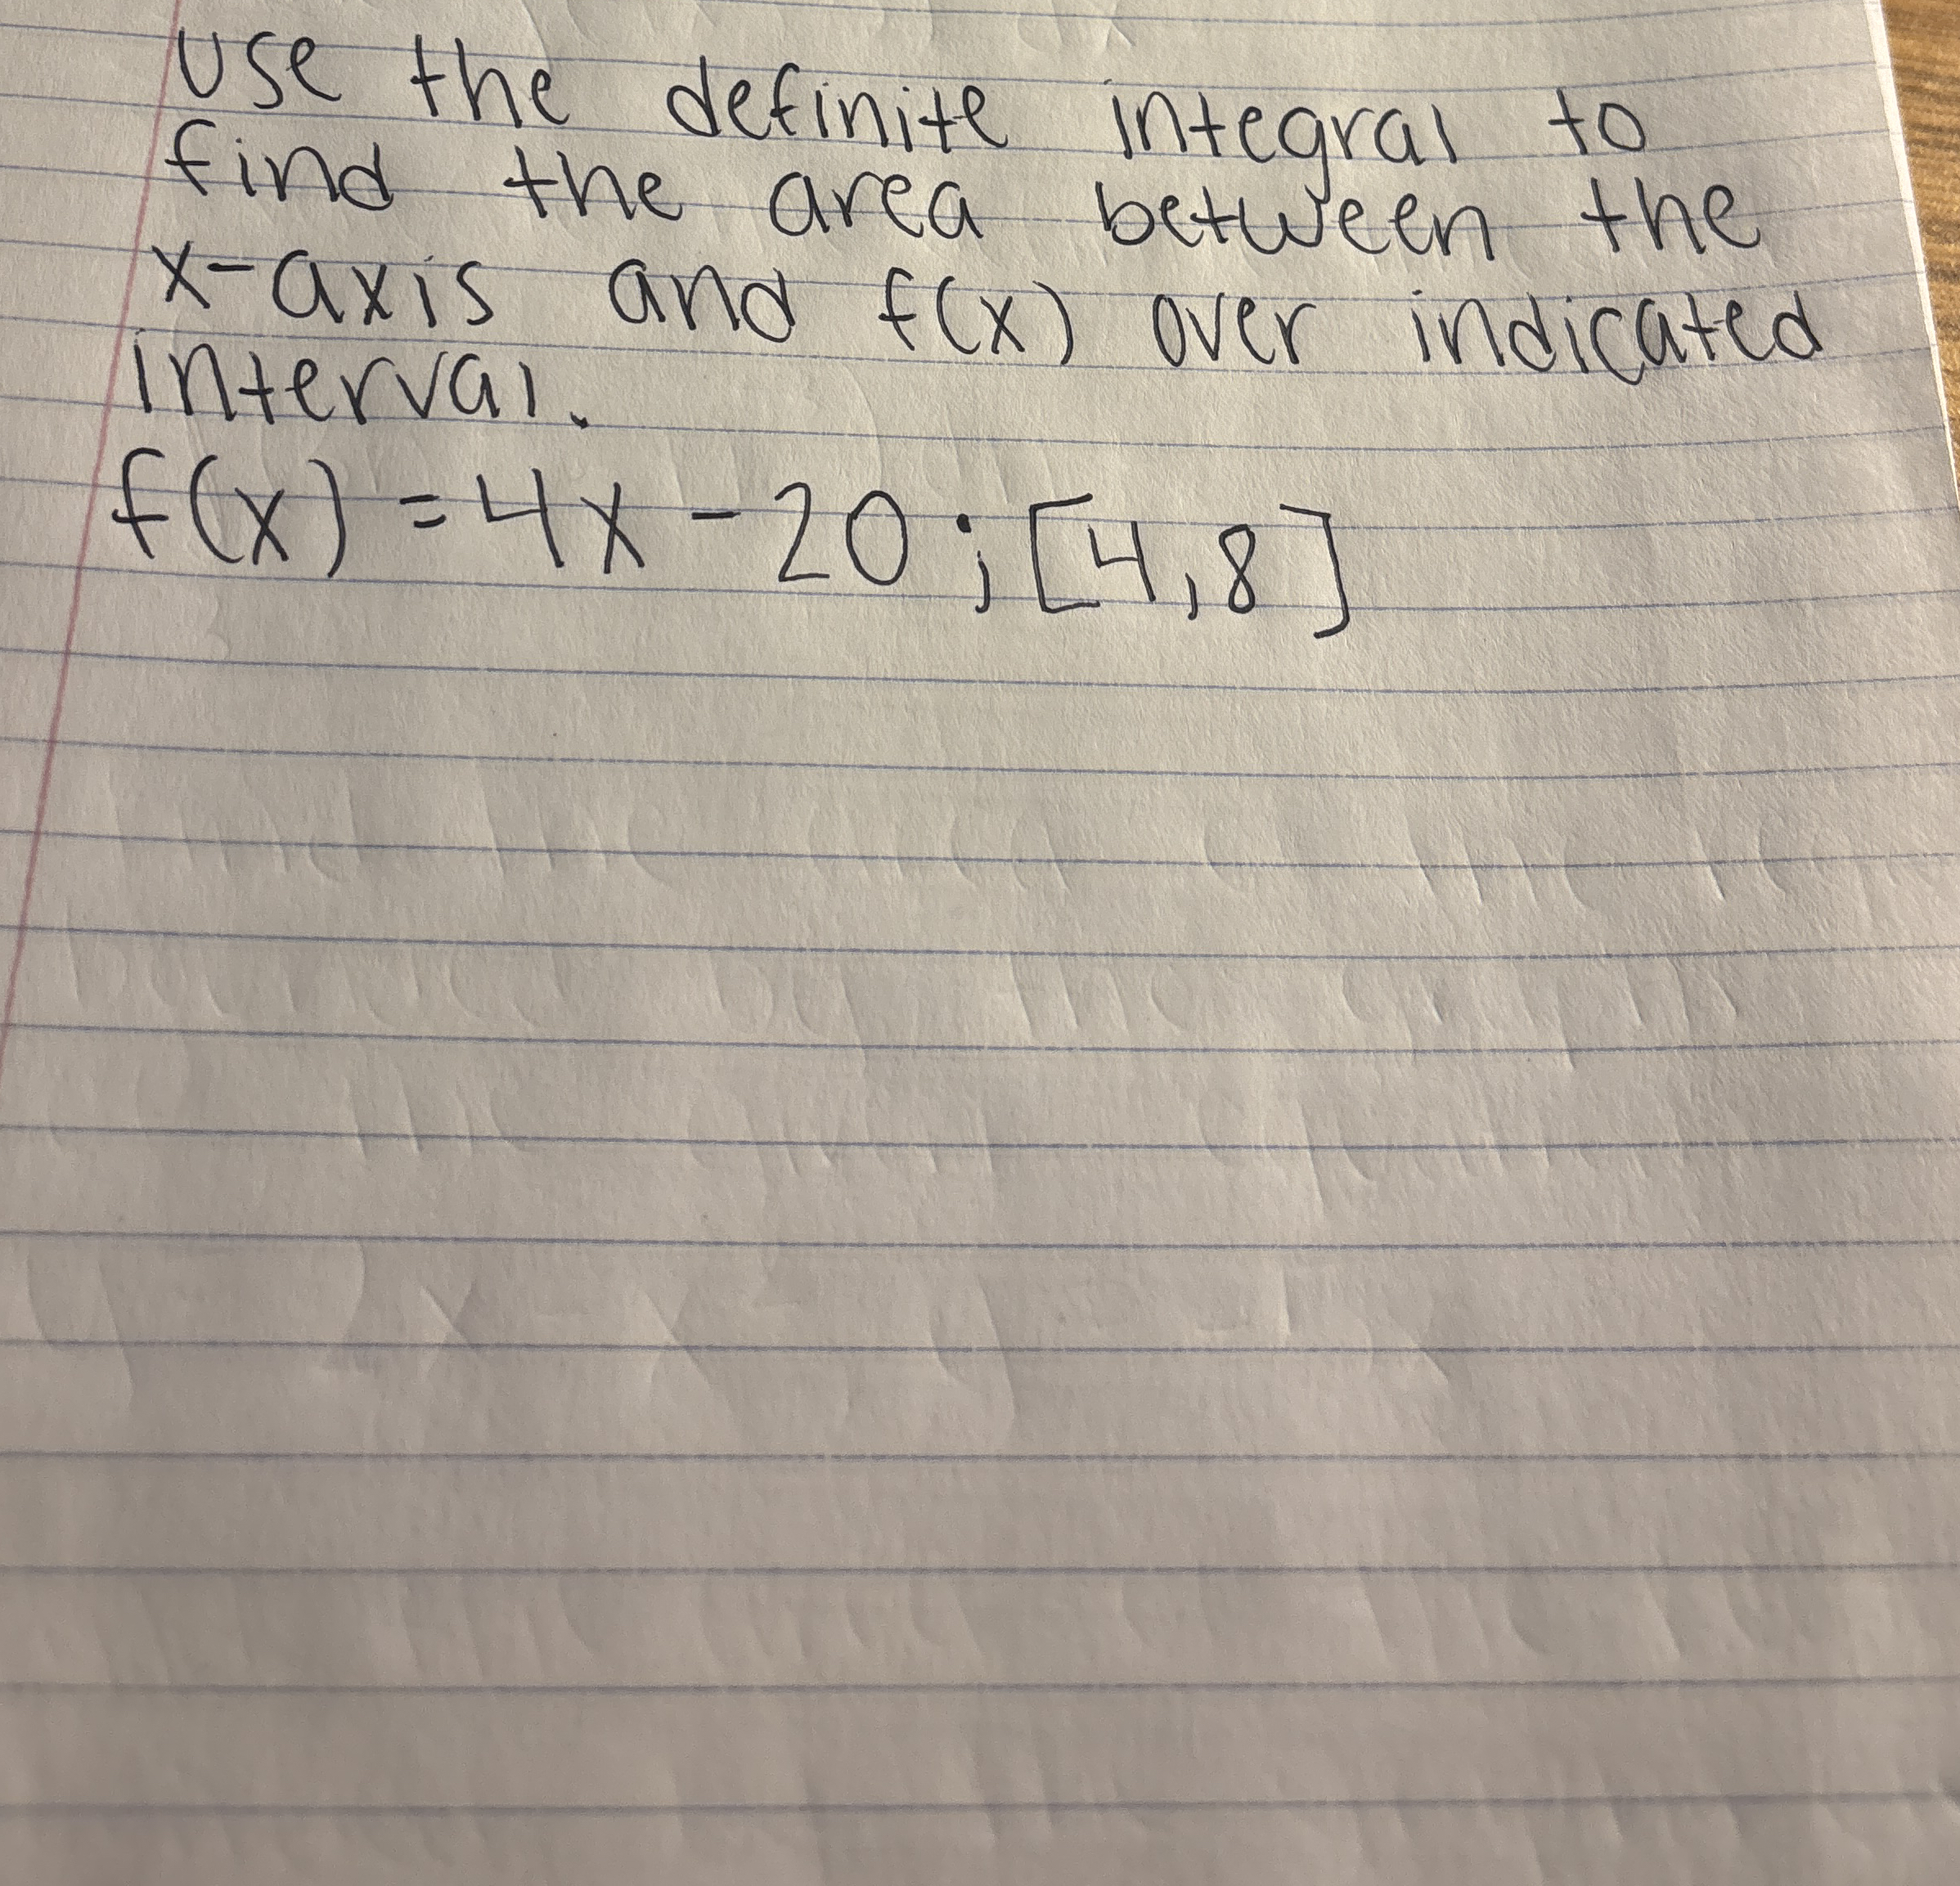 Use the definite integral to
find the area between the
x-axis and f(x) over indicated
interval.
f(x) = 4x - 20 ; [4,8]